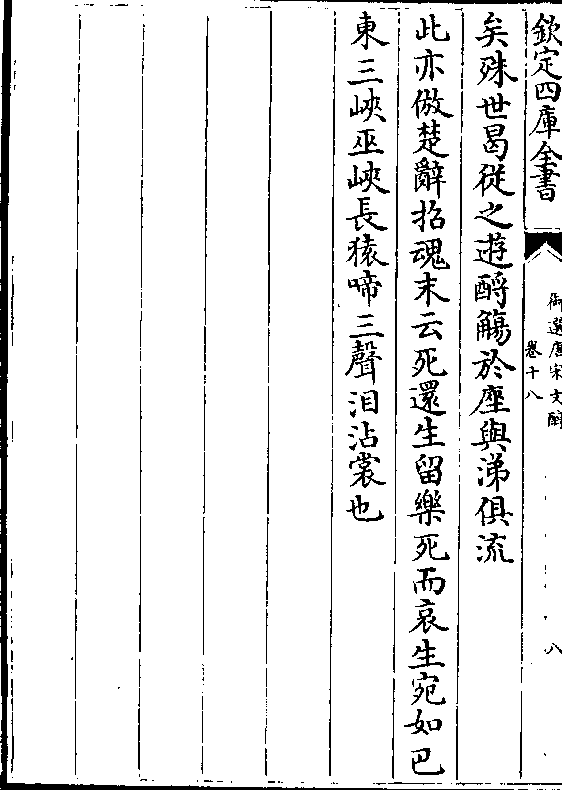 欽定四庫全書
御選唐宋文醇
卷十八
八
矣殊世曷從之遊酹觴於座與涕俱流
此亦倣楚辭招魂末云死還生留樂死而哀生宛如巴
東三峽巫峽長猿啼三聲泪沾裳也